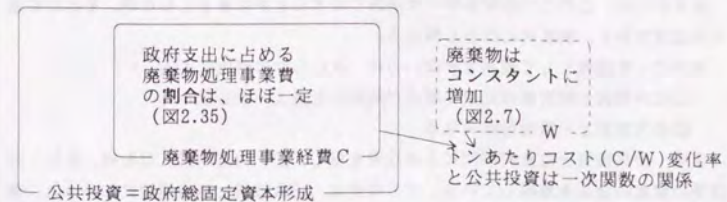 政府支出に占める
廃棄物処理事業費
の割合は、ほぼ一定
(図2.35)
廃棄物処理事業経費C
公共投資=政府総固定資本形成
廃棄物は
コンスタントに
増加
(図2.7)
W
トンあたりコスト(C/W)変化率
と公共投資は一次関数の関係